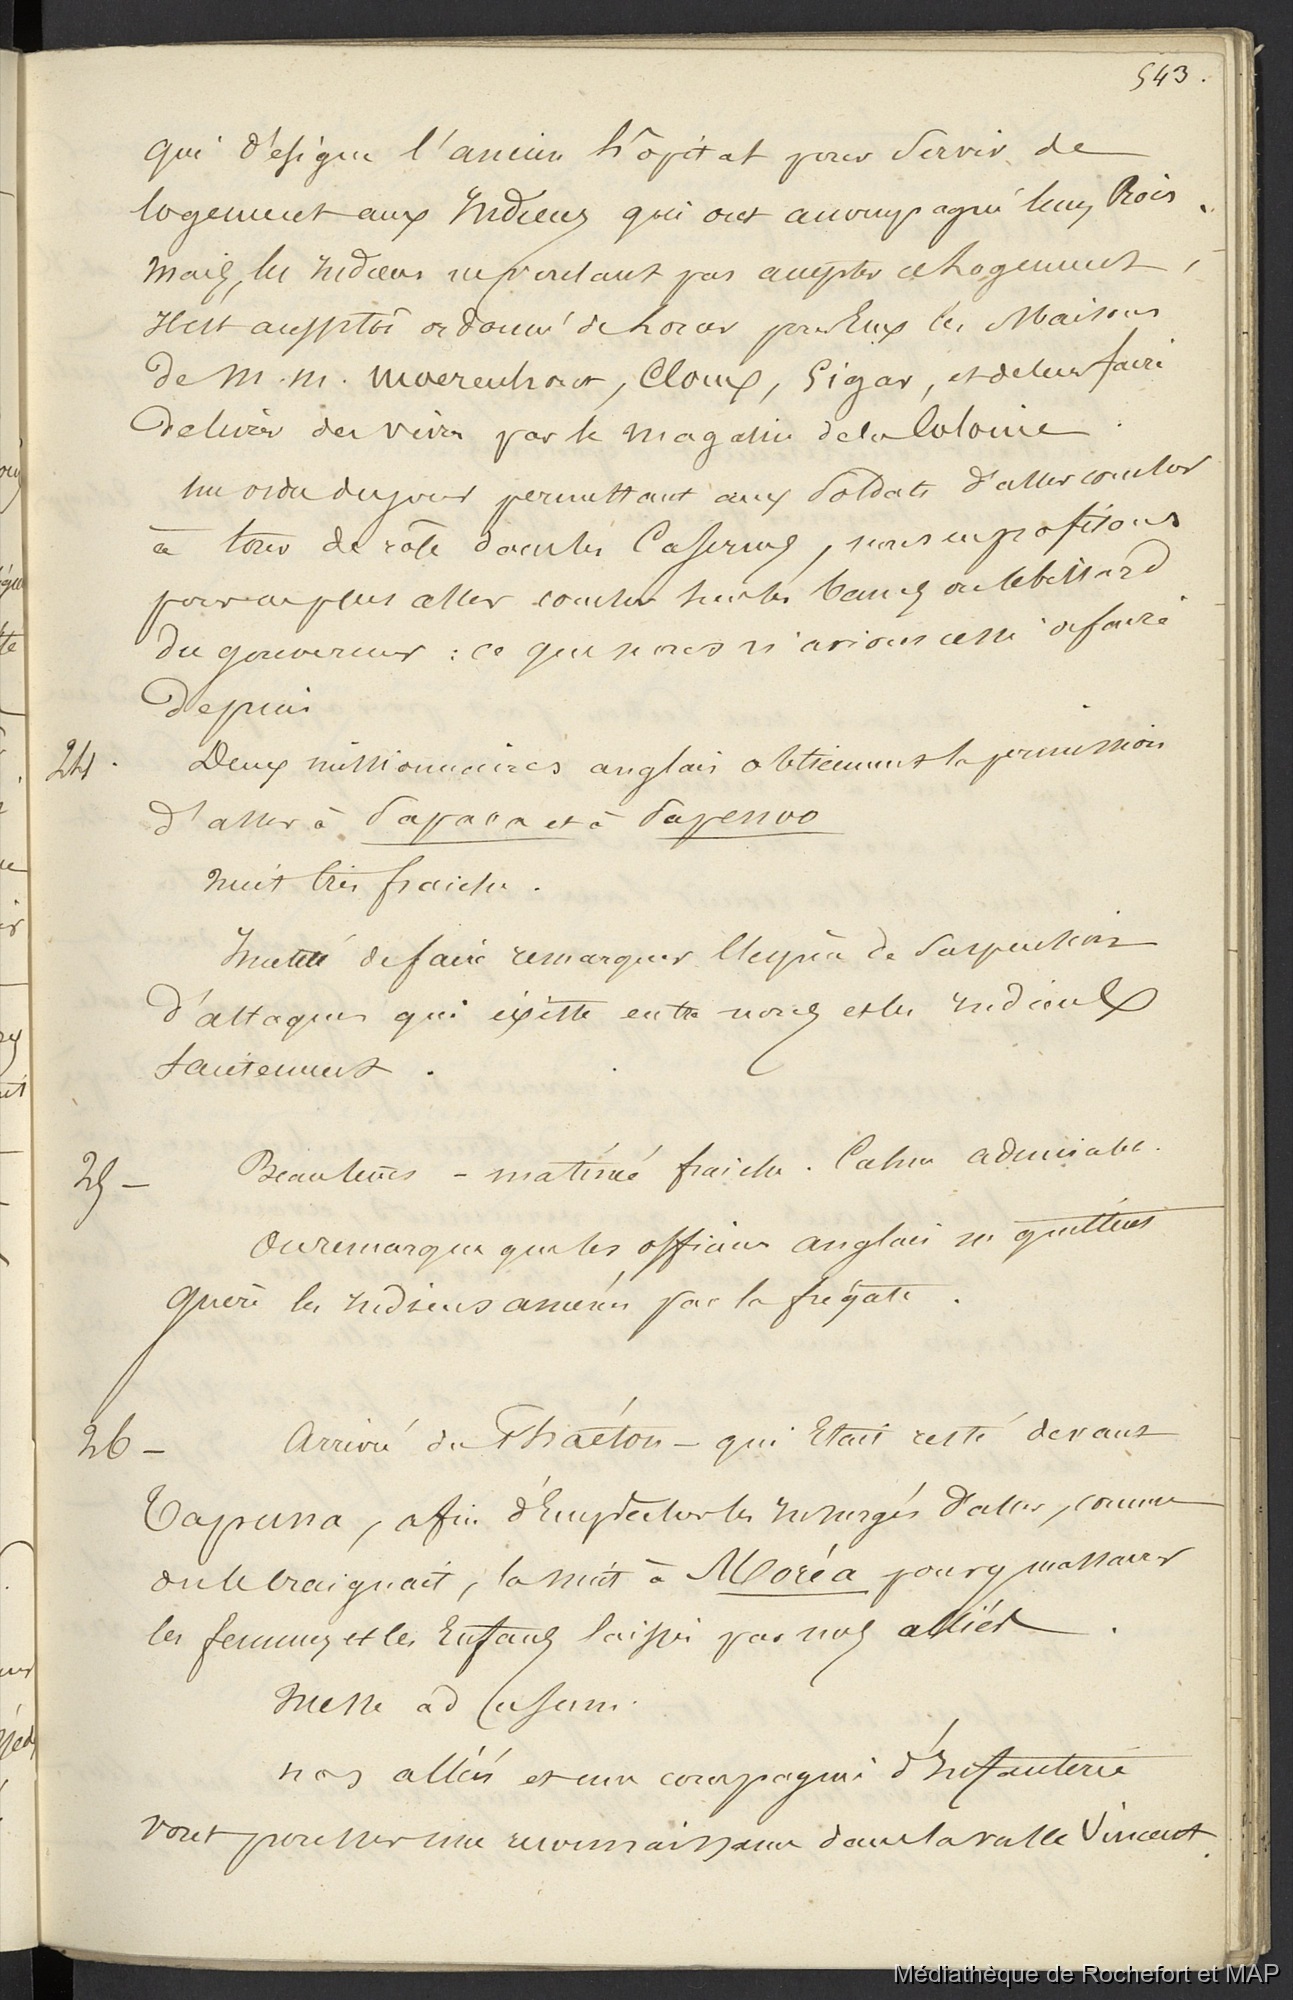 543.
qui désigne l'ancien hôpital pour servir de
logement aux Indiens qui ont accompagné leurs Rois.
mais, les Indiens ne voulant pas accepter ce logement,
il est aussitôt ordonné de louer pour Eux les Maisons
de M.M. Moerenhout, Cloux, Gigar, et de leur faire
délivrer des vivres par le magasin de la Colonie.
un ordre du jour permettant aux soldats d'aller coucher
à tour de rôle dans les Casernes, nous en profitons
pour ne plus aller coucher sur les bancs ou le billard
du gouverneur : ce que nous n'avions cessé de faire
Depuis
24. Deux missionnaires anglais obtiennent la permission
d'aller à Papara et à Papenoo
nuit très fraiche.
Inutile de faire remarquer l'espèce de suspension
d'attaques qui existe entre nous et les Indiens
tautement.
25 - Beau temps - matinée fraiche. Calme admirable.
On remarque que les officiers anglais ne quittent
guère les Indiens amenés par la frégate.
26 - Arrivée du Phaéton - qui Etait resté devant
Tapuna, afin d'Empêcher les Insurgés d'aller, comme
on le craignait, la nuit à Moréa pour y massacrer
les femmes et les Enfans laissés par nos alliés.
Messe ad
nos alliés et une compagnie d'Infanterie
vont pousser une reconnaissance dans la vallée Vincent.
Médiathèque de Rochefort et MAP